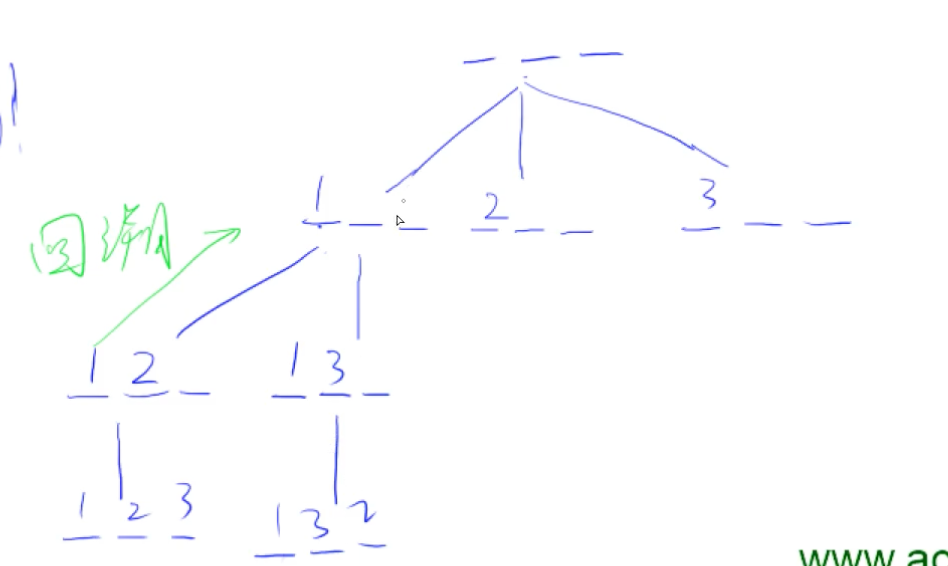 1 2 3
回溯
1 2 1 3
1 2 3 1 3 2
www.ac